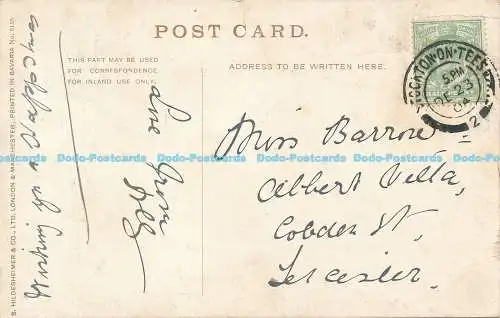 POST CARD.
THIS PART MAY BE USED
FOR CORRESPONDENCE
FOR INLAND USE ONLY.
ADDRESS TO BE WRITTEN HERE.
STOCKTON-ON-TEES
5 PM
23
04
2
Love
from
Miss Barrow
Albert Villa,
Cobden St,
Leicester.
S. HILDESHEIMER & CO., LTD. LONDON & MANCHESTER. PRINTED IN BAVARIA
Dodo-Postcards Dodo-Postcards Dodo-Postcards Dodo-Postcards Dodo-Postcards Dodo-Postcards